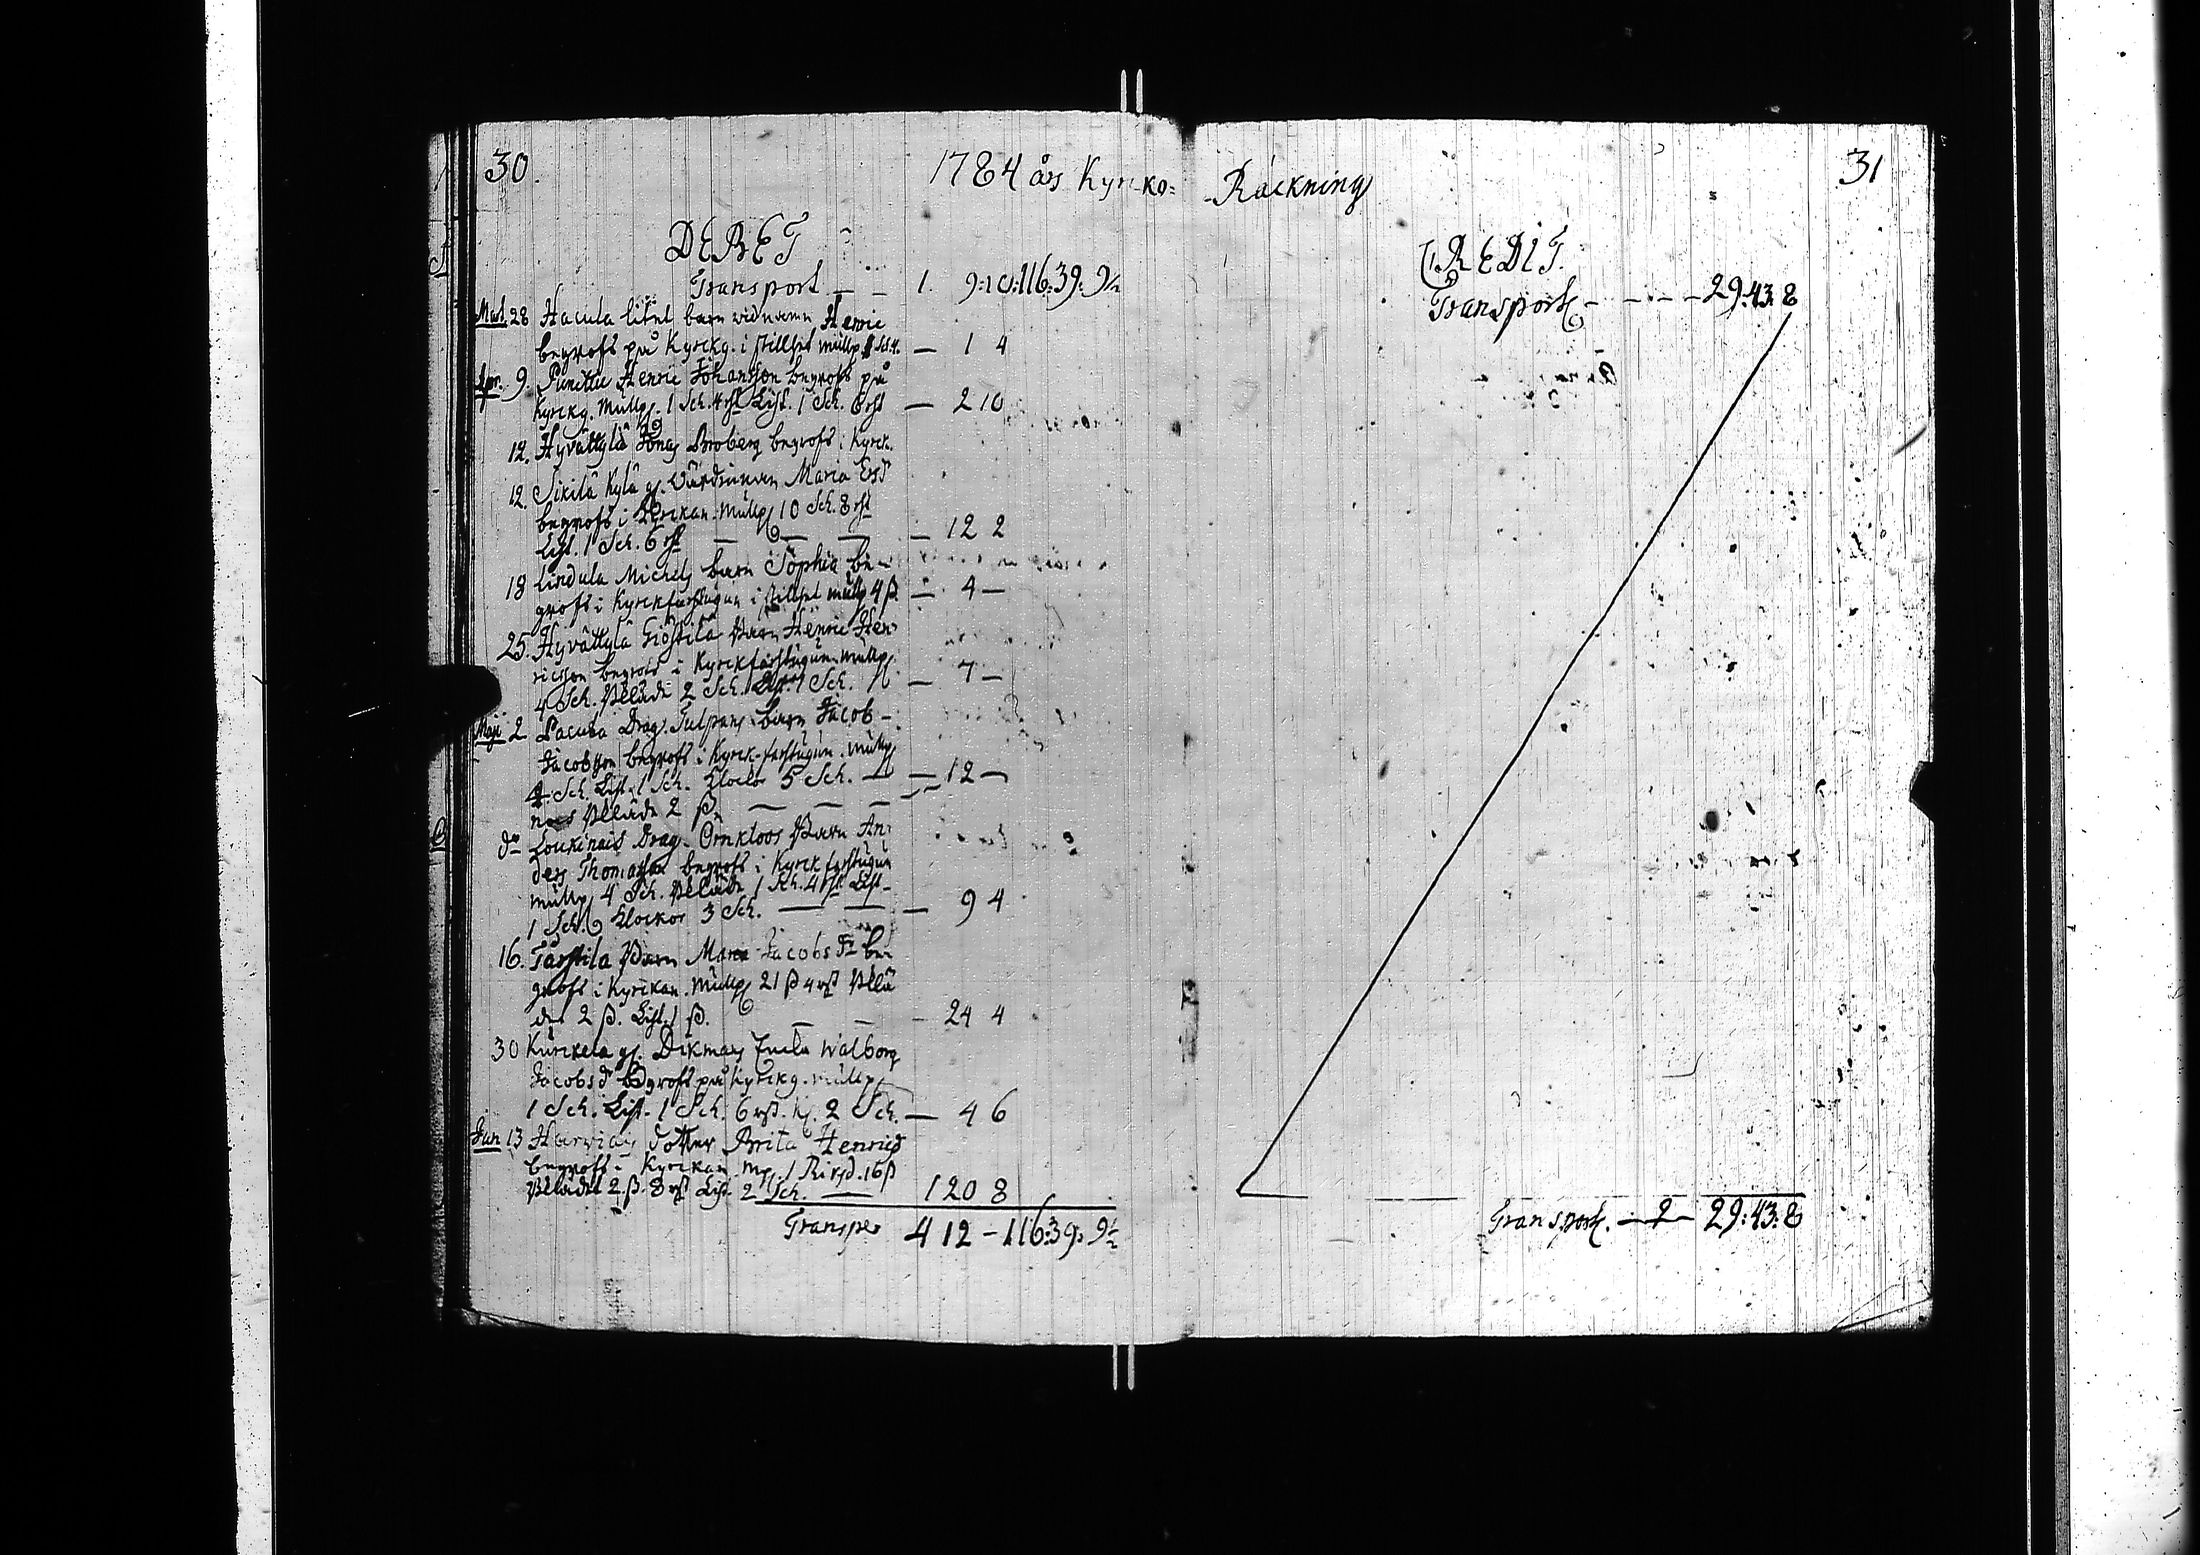 30
1784 års Kyrcko=
DEBET
Transport — — 1. 9:10:116:39:9½
Mart. 28 Hacula litet barn vid namn Henric
begrofs på Kyrckg. i stillhet mullp. 1 Sch. 4. — 1 4
Apr. 9. Henric Johansson begrofs på
Kyrckg. Mullp. 1 Sch. 4 rst Lijk. 1 Sch. 6 rst — 2 10
12. Hyvättylä Jonas Broberg begrofs i Kyrck.
12. Sikilä Kylä g. Värdinnan Maria Ersd
begrofs i Kyrckan Mullp. 10 Sch. 8 rst
Lijk. 1 Sch. 6 rst — — — — 12 2
18 Lindula Michels barn Sophia be-
grofs i Kyrckfarstugun i stillhet mullp 4 ß — 4 —
25. Hyvättylä Giöstilä Barn Henric Hen-
ricsson begrofs i Kyrckfarstugun mullp.
4 Sch. Plläde 2 Sch. Lijk. 1 Sch. — 7 —
Maji 2 Pacula Drag. Tulpans barn Jacob
Jacobsson begrofs i Kyrck-farstugun. Mullp
4 Sch. Lijk. 1 Sch. Klockor 5 Sch. — — 12 —
Plläde 2 ß. — — —
do Loukinais Drag. Örnkloos Barn An-
ders Thomasson begrofs i Kyrckfarstugun
Mullp 4 Sch. Plläde 1 Sch. 4 rst Lijk.
1 Sch. Klockor 3 Sch. — — — 9 4
16. Tarstila Barn Maria Jacobs Dr be-
grofs i Kyrckan. Mullp 21 ß 4 rst Pllä
det 2 ß. Lijk. 1 ß. — — — 24 4
30 Kurckela g. Dikmans Enka Walborg
Jacobsd Begrofs på Kyrckg. mullp.
1 Sch. Lijk. 1 Sch. 6 rst. Kl. 2 Sch. — 4 6
Jun 13 dotter Brita Henricsd
begrofs i Kyrckan Mp. 1 Rirsd. 16 ß
Plläde 2 ß. 8 rst Lijk. 2 Sch. — 1 20 8
Transp 4 12 - 116:39:9½
Räckning
31
CREDIT.
Transport - - - - 29:43:8
Transport. - - - 29:43:8